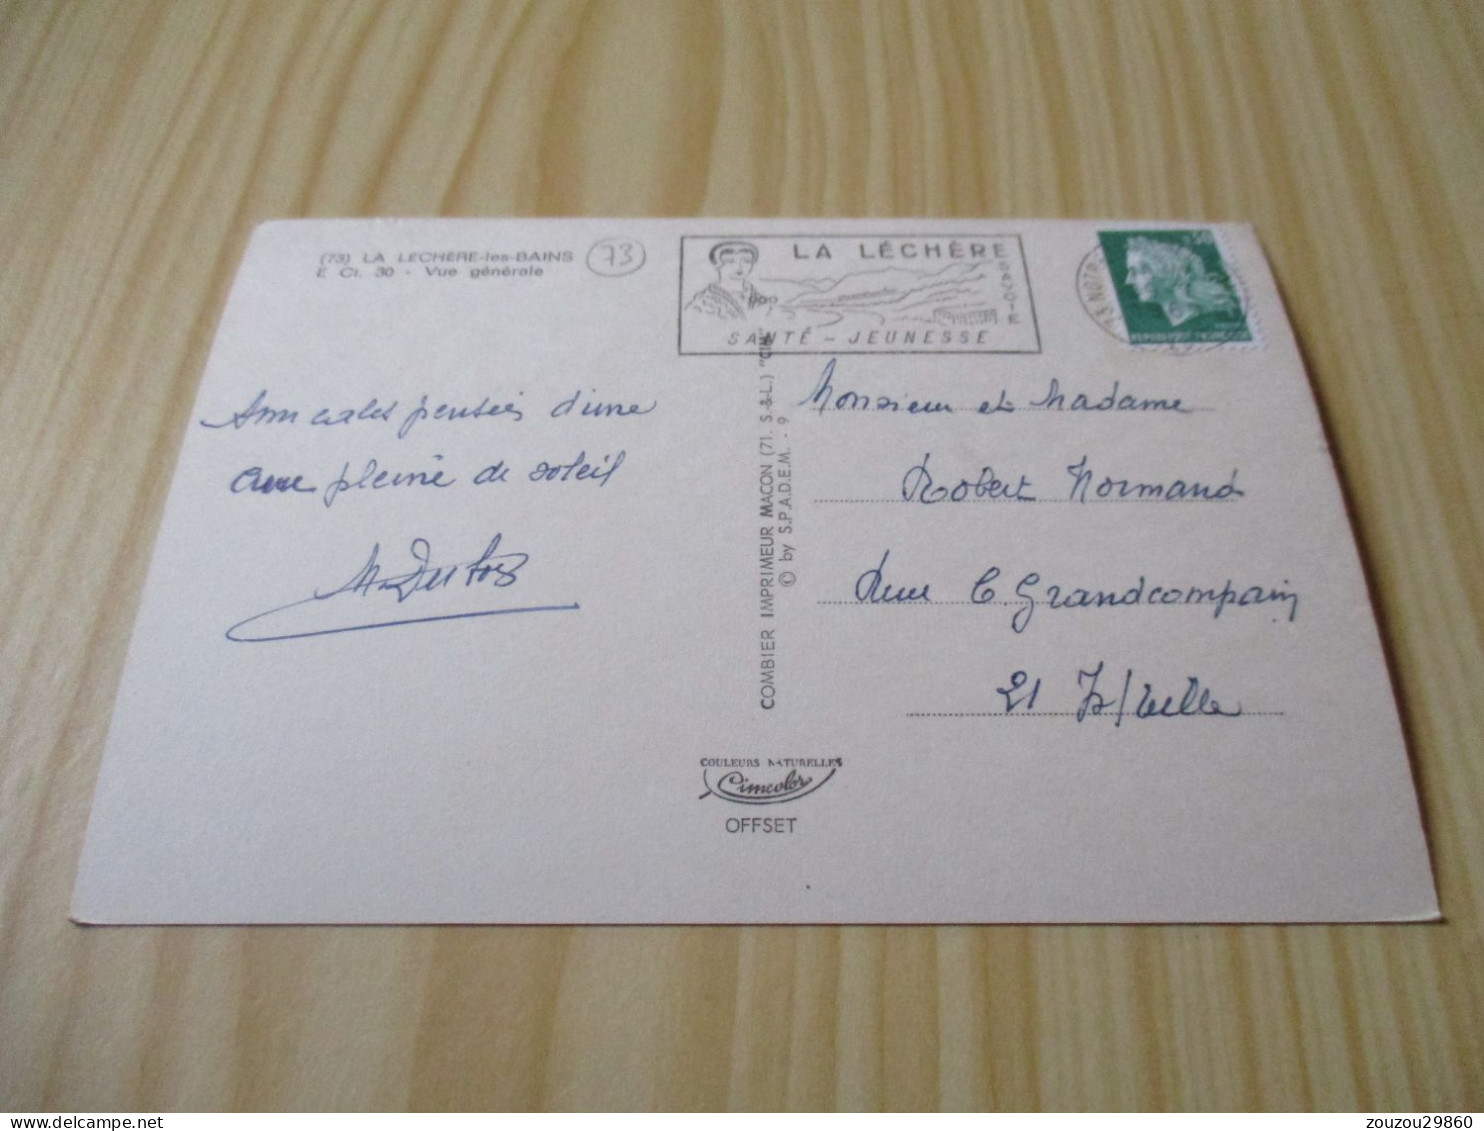 (73) LA LÉCHÈRE-les-BAINS
E Ct. 30 - Vue générale
73
LA LÉCHÈRE
SAVOIE
SANTÉ - JEUNESSE
73 NOTR
0,30
REPUBLIQUE FRANÇAISE
Amicales pensées d'une
cure pleine de soleil
COMBIER IMPRIMEUR MACON (71. S.-&-L.) "CIM"
© by S.P.A.D.E.M. - 9
Monsieur et Madame
Robert Normand
Rue C. Grandcompain
21 Is/Tille
COULEURS NATURELLES
Cimcolor
OFFSET
zouzou29860